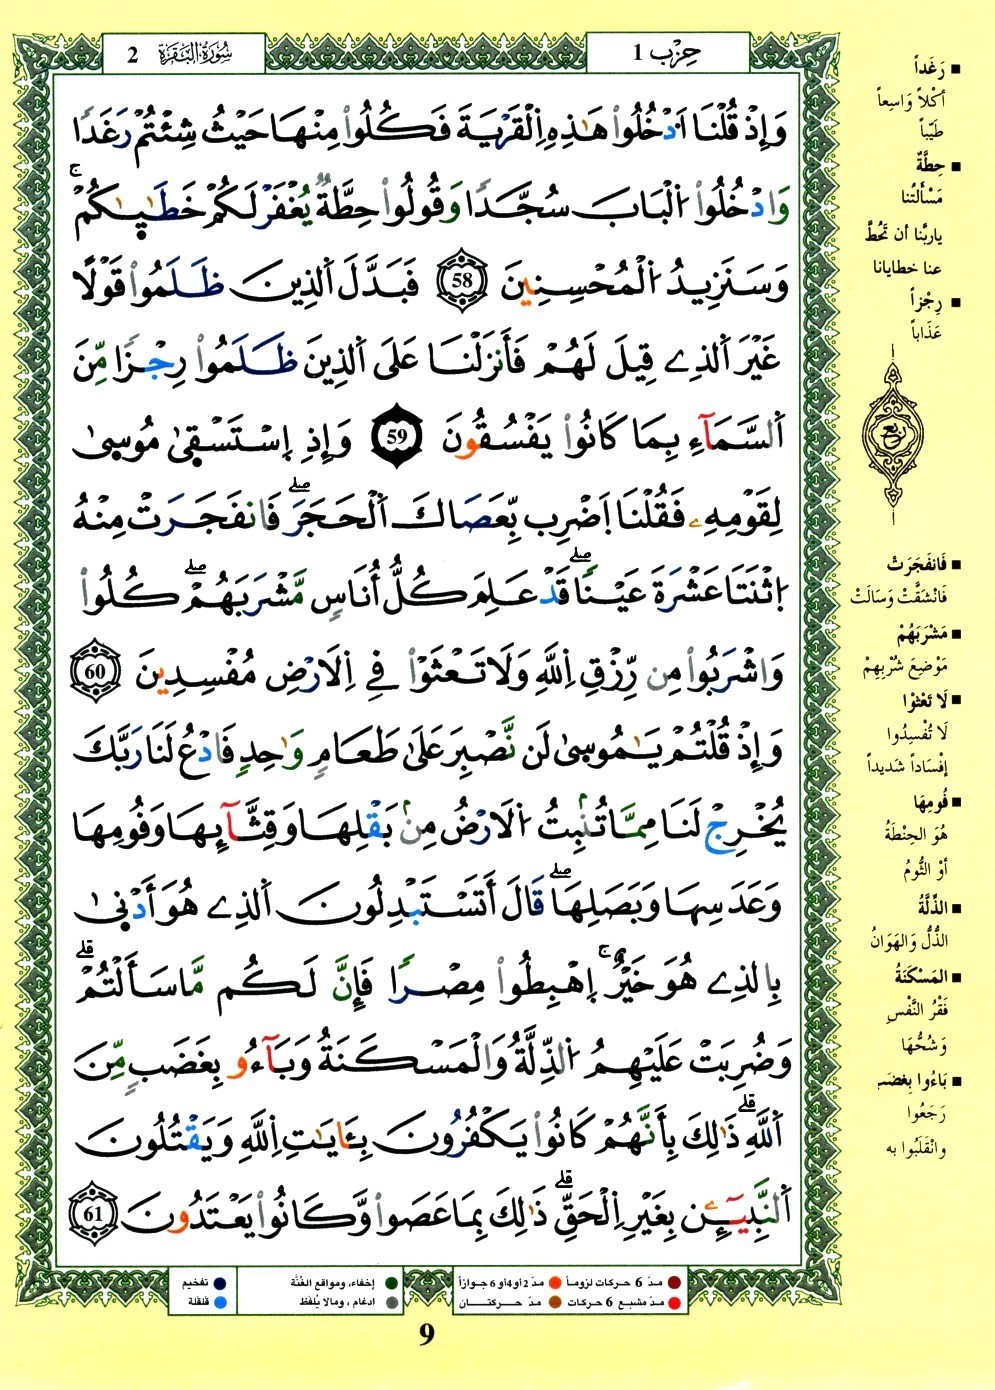 حِزْب 1
سُورَةُ الْبَقَرَة 2
وَإِذْ قُلْنَا اَدْخُلُواْ هَٰذِهِ اِلْقَرْيَةَ فَكُلُواْ مِنْهَا حَيْثُ شِئْتُمْ رَغَدٗا
وَادْخُلُواْ اُلْبَابَ سُجَّدٗا وَقُولُواْ حِطَّةٞ يُغْفَرْ لَكُمْ خَطَٰيَٰكُمْۖ
وَسَنَزِيدُ اُلْمُحْسِنِينَ 58 فَبَدَّلَ اَلذِينَ ظَلَمُواْ قَوْلًا
غَيْرَ اَلذِے قِيلَ لَهُمْ فَأَنزَلْنَا عَلَى اَلذِينَ ظَلَمُواْ رِجْزٗا مِّنَ
اَلسَّمَآءِ بِمَا كَانُواْ يَفْسُقُونَ 59 وَإِذِ اِسْتَسْقَىٰ مُوسَىٰ
لِقَوْمِهِۦ فَقُلْنَا اَضْرِب بِّعَصَاكَ اَلْحَجَرَۖ فَانفَجَرَتْ مِنْهُ
اُثْنَتَا عَشْرَةَ عَيْنٗاۖ قَدْ عَلِمَ كُلُّ أُنَاسٖ مَّشْرَبَهُمْۖ كُلُواْ
وَاشْرَبُواْ مِن رِّزْقِ اِللَّهِ وَلَا تَعْثَوْاْ فِے اِلَارْضِ مُفْسِدِينَ 60
وَإِذْ قُلْتُمْ يَٰمُوسَىٰ لَن نَّصْبِرَ عَلَىٰ طَعَامٖ وَٰحِدٖ فَادْعُ لَنَا رَبَّكَ
يُخْرِجْ لَنَا مِمَّا تُنۢبِتُ اُلَارْضُ مِنۢ بَقْلِهَا وَقِثَّآئِهَا وَفُومِهَا
وَعَدَسِهَا وَبَصَلِهَاۖ قَالَ أَتَسْتَبْدِلُونَ اَلذِے هُوَ أَدْنَىٰ
بِالذِے هُوَ خَيْرٌۚ اِهْبِطُواْ مِصْرٗا فَإِنَّ لَكُم مَّا سَأَلْتُمْۗ
وَضُرِبَتْ عَلَيْهِمُ اُلذِّلَّةُ وَالْمَسْكَنَةُ وَبَآءُو بِغَضَبٖ مِّنَ
اَللَّهِۗ ذَٰلِكَ بِأَنَّهُمْ كَانُواْ يَكْفُرُونَ بِـَٔايَٰتِ اِللَّهِ وَيَقْتُلُونَ
اَلنَّبِيٓـِٕۧنَ بِغَيْرِ اِلْحَقِّۗ ذَٰلِكَ بِمَا عَصَواْ وَّكَانُواْ يَعْتَدُونَ 61
رَغَداً
أكْلاً وَاسِعاً
طَيّباً
حِطَّةٌ
مَسْأَلَتُنَا
ياربَّنا أن تَحُطَّ
عنا خطايانا
رِجْزاً
عَذَاباً
ربع
فَانفَجَرَتْ
فَانْشَقَّتْ وَسَالَتْ
مَشْرَبَهُمْ
مَوْضِعَ شُرْبِهِمْ
لَا تَعْثَوْا
لَا تُفْسِدُوا
إفْسَاداً شَديداً
فُومِهَا
هُوَ الحِنْطَةُ
أوْ الثُّومُ
الذِّلَّةُ
الذُّلُّ وَالهَوَانُ
المَسْكَنَةُ
فَقْرُ النَّفْسِ
وَشُحُّهَا
بَاءُوا بِغَضَبٍ
رَجَعُوا
وانْقَلَبُوا به
مدّ 6 حركات لزوماً مدّ 2 أو 4 أو 6 جوازاً إخفاء، ومواقع الغُنَّة تفخيم
مدّ مشبع 6 حركات مدّ حركتـان ادغام ، ومالا يُلفَظ قلقلة
9